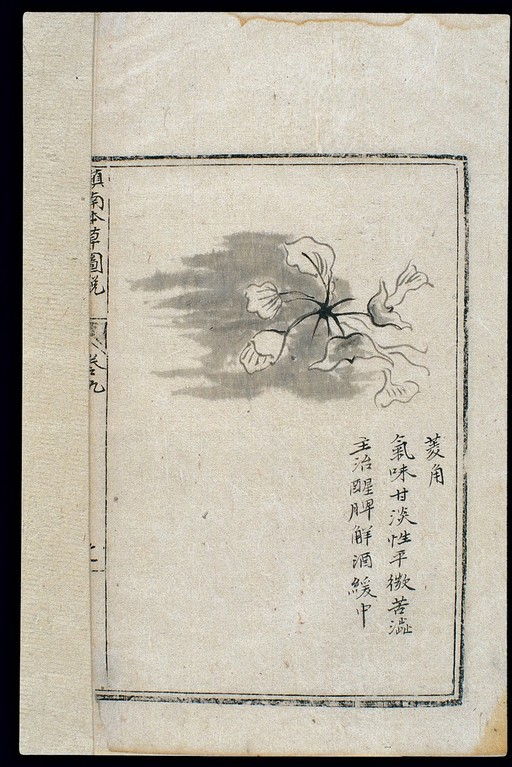 菱角
氣味甘淡性平微苦澁
主治醒脾解酒緩中
滇南本草圖說
卷之九